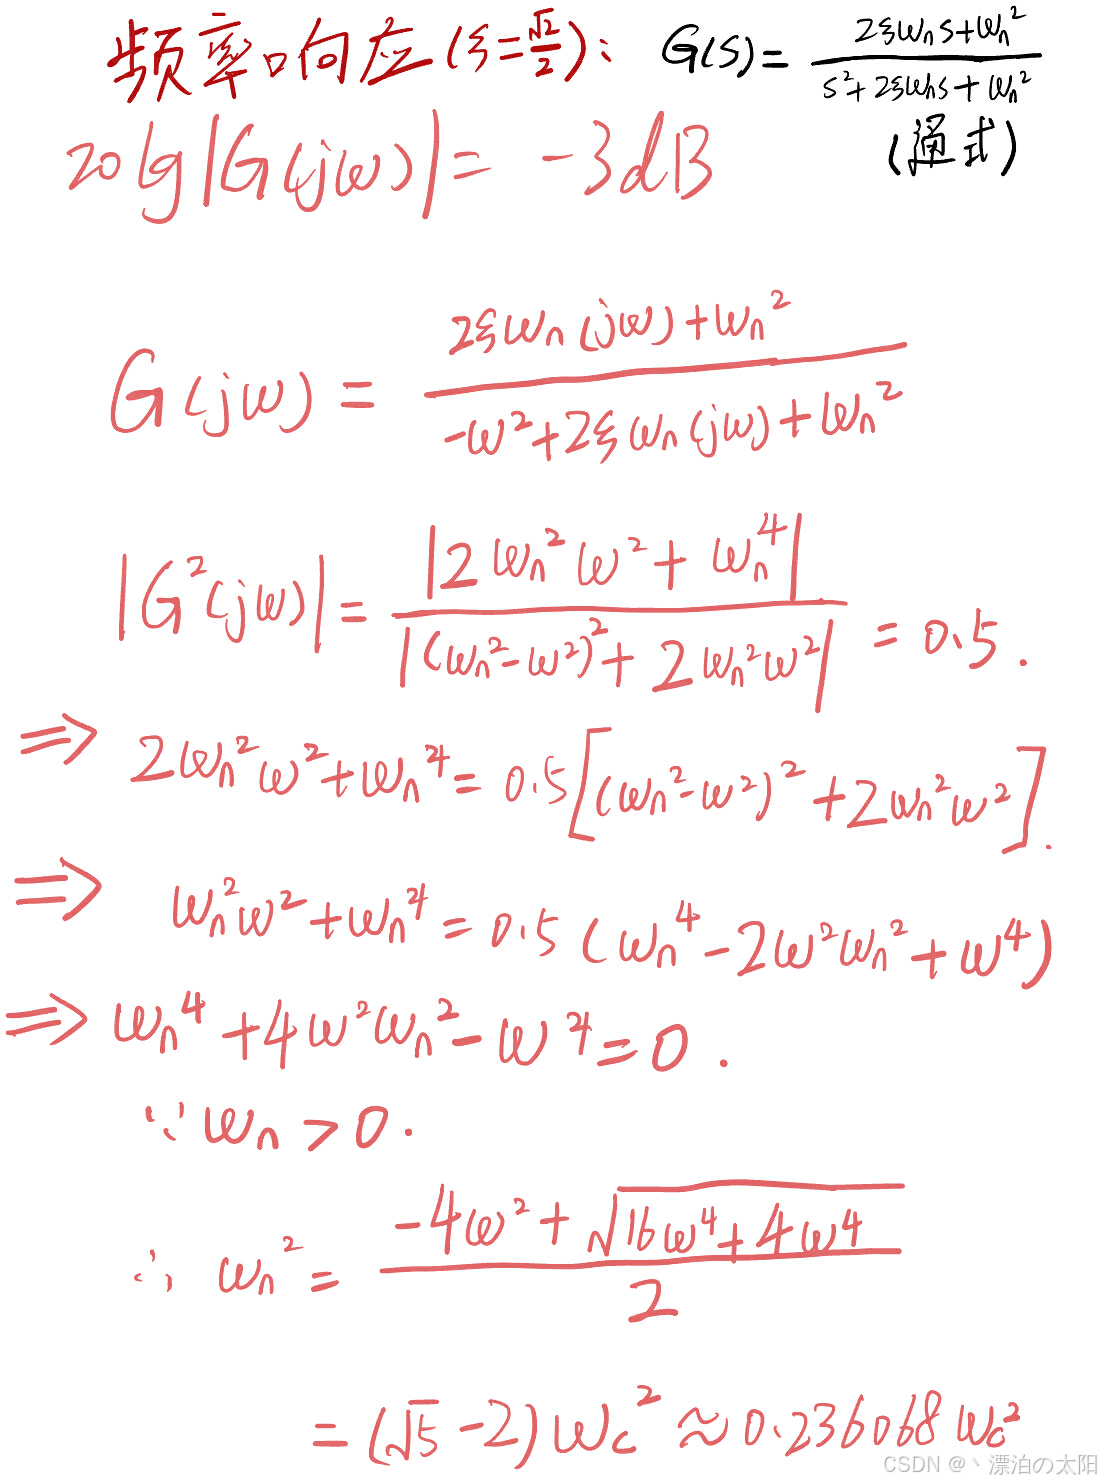 频率响应(ξ=√2/2): G(s)= (2ξωns+ωn²)/(s²+2ξωns+ωn²)
(通式)
20lg|G(jω)|= -3dB
G(jω) = (2ξωn(jω)+ωn²)/(-ω²+2ξωn(jω)+ωn²)
|G²(jω)|= |2ωn²ω²+ωn⁴|/|(ωn²-ω²)²+2ωn²ω²| = 0.5.
⇒ 2ωn²ω²+ωn⁴=0.5[(ωn²-ω²)²+2ωn²ω²].
⇒ ωn²ω²+ωn⁴=0.5(ωn⁴-2ω²ωn²+ω⁴)
⇒ ωn⁴+4ω²ωn²-ω⁴=0.
∵ ωn>0.
∴ ωn²= (-4ω²+√(16ω⁴+4ω⁴))/2
=(√5-2)ωc²≈0.236068ωc²
CSDN @丶漂泊の太阳